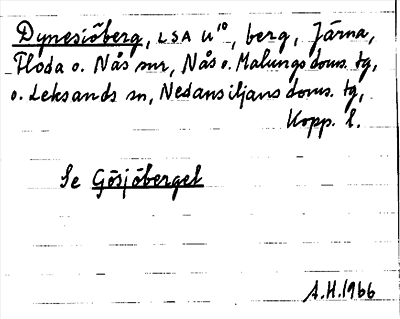 Dynesiöberg, LSA U¹⁰, berg, Järna,
Floda o. Nås snr, Nås o. Malungs doms. tg,
o. Leksands sn, Nedansiljans doms. tg,
Kopp. l.
Se Gösjöberget
A.H.1966